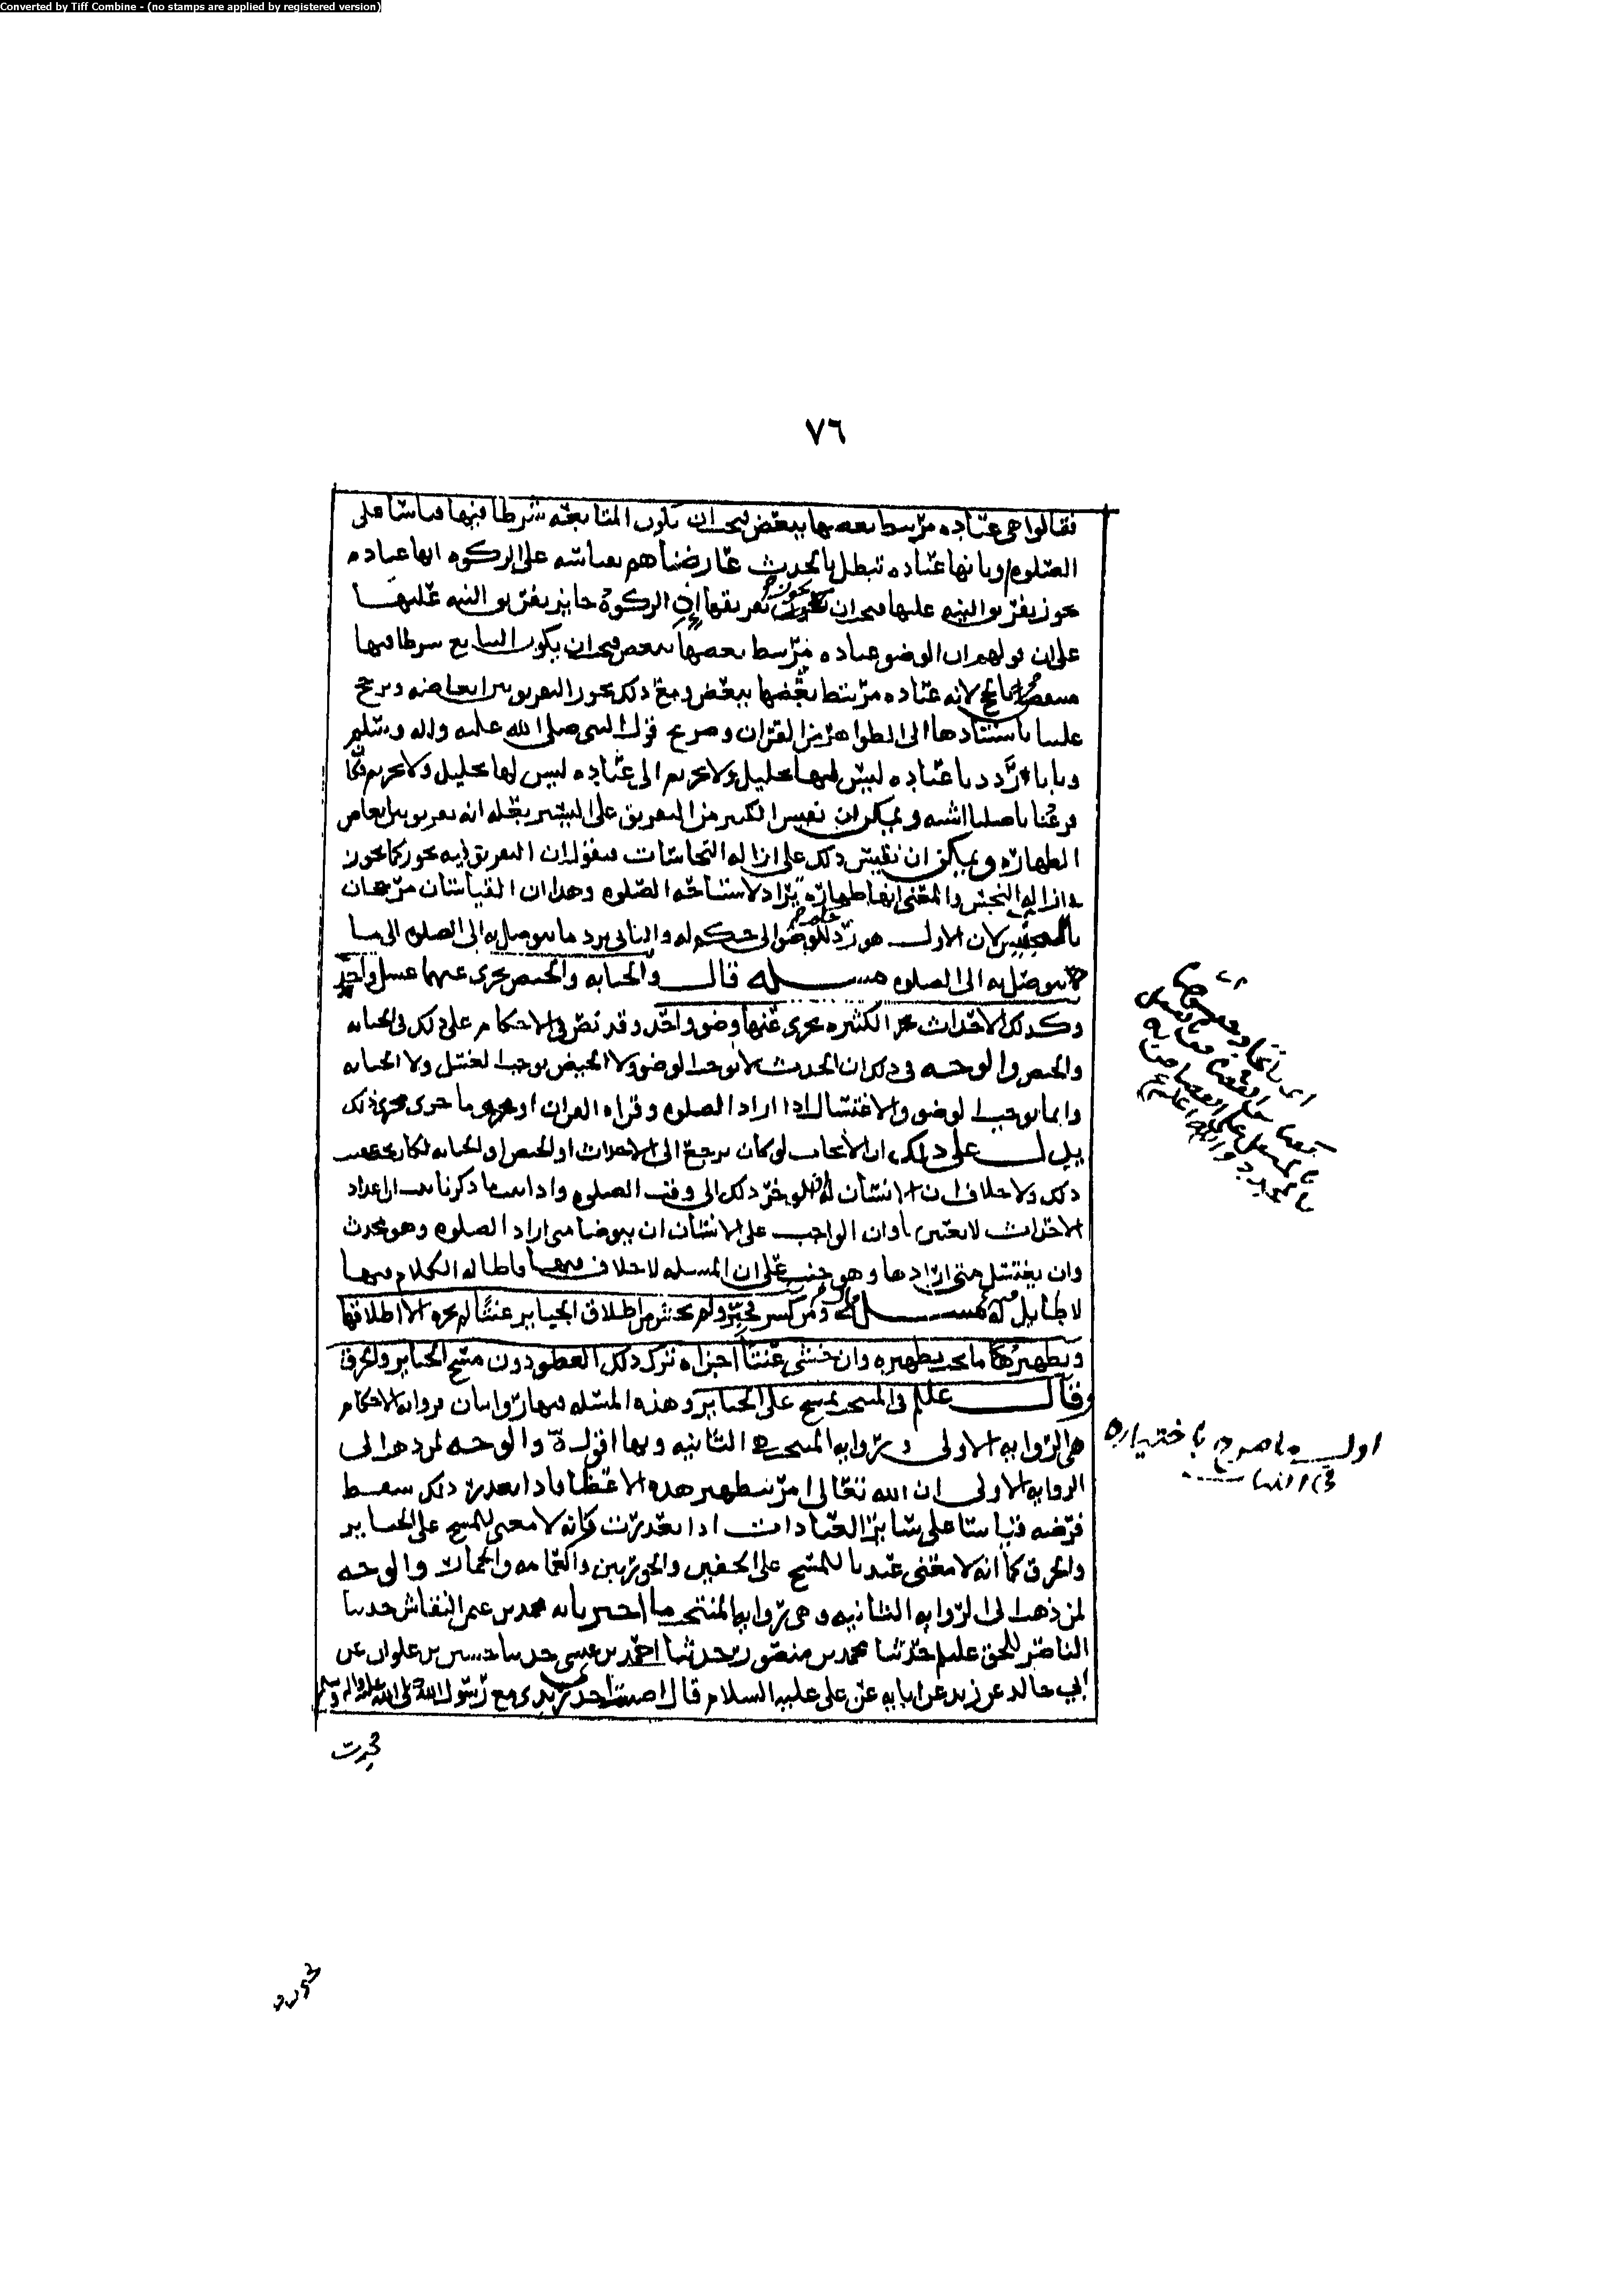 Converted by Tiff Combine - (no stamps are applied by registered version)
٧٦
فقالوا هي عباده مرتبط بعضها ببعض فيجب ان تكون المتابعه شرطا فيها قياسا على
الصلوه وبانها عباده تبطل بالحدث عارضناهم بقياسه على الزكوه انها عباده
يجوز تفريق النيه عليها فيجب ان يجوز تفريقها اذ الزكوه جايز تفريق النيه عليها
على ان قولهم ان الوضو عباده مرتبط بعضها ببعض فيجب ان يكون التتابع شرطا فيها
منتقض بالحج لانه عباده مرتبط بعضها ببعض ومع ذلك يجوز التفريق بين ابعاضه ونرجح
علينا باستنادها الى الظواهر من القران وصريح قول النبي صلى الله عليه واله وسلم
وبانا نرد عباده ليس لها تحليل ولا تحريم الى عباده ليس لها تحليل ولا تحريم فكان
فرعنا باصلنا اشبه ويمكن ان نقيس الكثير من التفريق على اليسير بعله انه تفريق بين ابعاض
الطهاره ويمكن ان نقيس ذلك على ازاله النجاسات فنقول ان التفريق فيه يجوز كما يجوز
في ازاله النجس والمعنى انها طهاره تراد لاستباحه الصلوه وهذان القياسان مرجحان
لان الاول هو رد للوضو الى حكم له والثاني يرد ما يتوصل به الى الصلوه الى ما
يتوصل به الى الصلوه مسله قال والجنابه والحيض يجزي عنهما غسل واحد
وكذلك الاحداث الكثيره يجزي عنها وضو واحد وقد نص في الاحكام على ذلك في الجنابه
والحيض والوجه في ذلك ان الحدث لا يوجب الوضو ولا الحيض يوجب الغسل ولا الجنابه
وانما يوجب الوضو والاغتسال اذا اراد الصلوه وقراه القران او ما جرى مجرى ذلك
يدل على ذلك ان الايجاب لو كان يرجع الى الاحداث او الحيض او الجنابه لكان يجب عقيب
ذلك ولا خلاف ان الانسان له ان يوخر ذلك الى وقت الصلوه واذا ثبت ما ذكرناه ثبت ان اعداد
الاحداث لا تعتبر وان الواجب على الانسان ان يتوضا متى اراد الصلوه وهو محدث
وان يغتسل متى ارادها وهو جنب على ان المسله لا خلاف فيها فاطاله الكلام فيها
لا طايل فيه مسله قال ومن كسر فجبر ولم يخش من اطلاق الجباير عنتا لم يجزه الا اطلاقها
وتطهير ما يجب تطهيره وان خشي عنتا اجزاه ترك ذلك العضو دون مسح الجباير والخرق
وقال عليلم في المنتخب يمسح على الجباير وهذه المسله فيها روايتان فروايه الاحكام
هي الروايه الاولى وروايه المنتخب هي الثانيه وبها اقول والوجه لمن ذهب الى
الروايه الاولى ان الله تعالى امر بتطهير هذه الاعضا فاذا تعذر ذلك سقط
فرضه قياسا على ساير العبادات اذا تعذرت فانه لا معنى للمسح على الجباير
والخرق كما انه لا معنى عندنا للمسح على الخفين والجوربين والعمامه والخمار والوجه
لمن ذهب الى الروايه الثانيه وهي روايه المنتخب ما اخبرنا به محمد بن عثمان النقاش حدثنا
الناصر للحق عليلم حدثنا محمد بن منصور حدثنا احمد بن عيسى حدثنا حسين بن علوان عن
ابي خالد عن زيد عن ابايه عن علي عليه السلام قال اصيبت احدى زندي مع رسول الله صلى الله عليه واله وسلم
فجبرت
اولى ما صرح باختياره